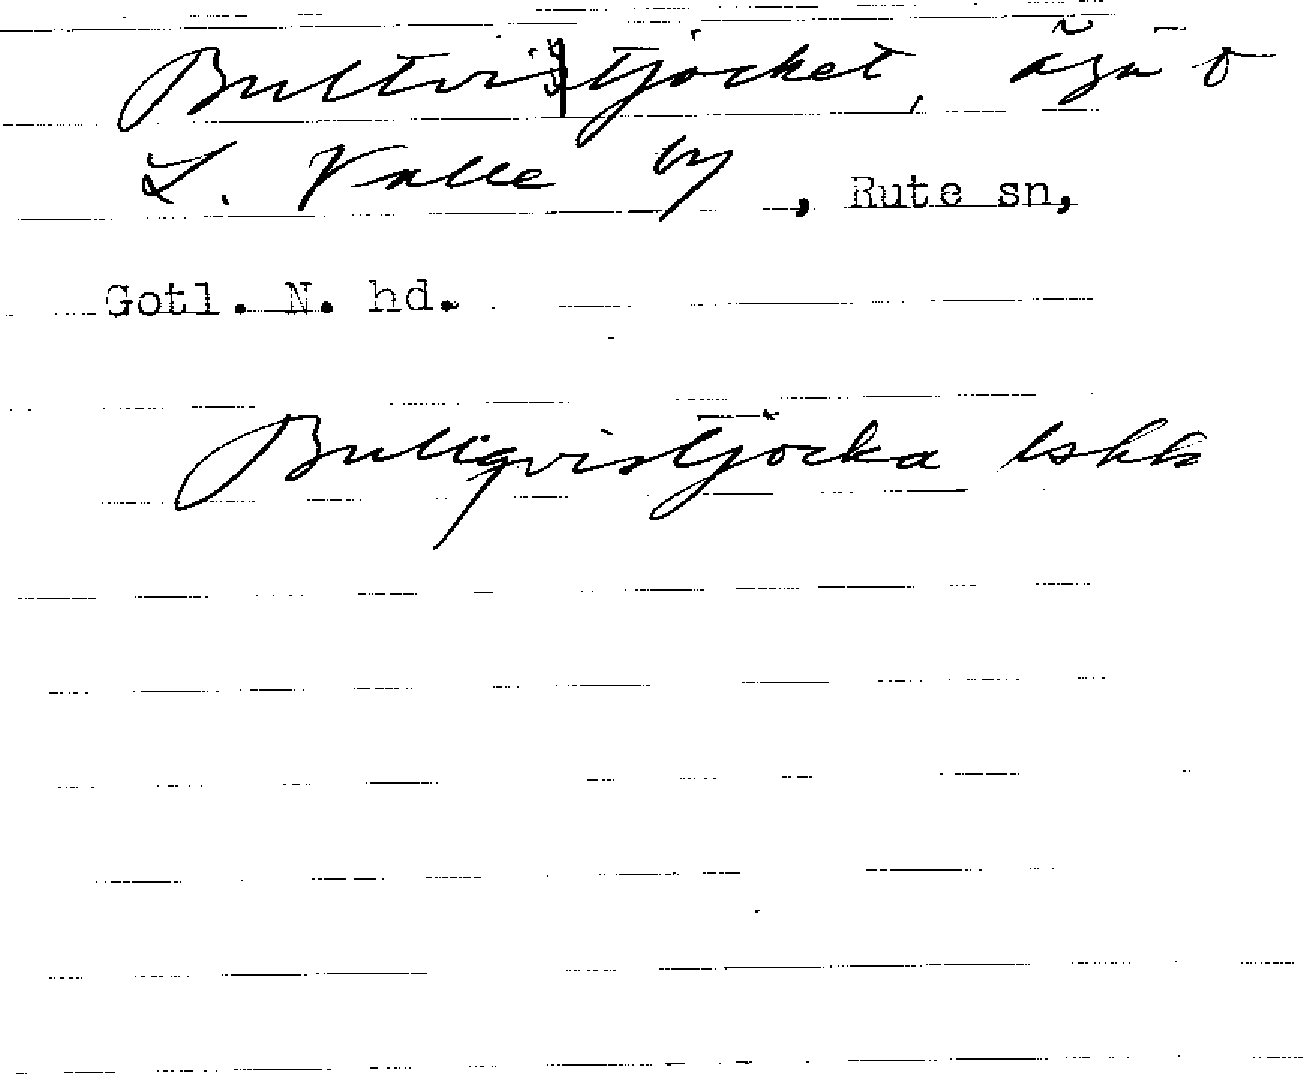 Bultvistjocket, äga o
L. Valle by, Rute sn,
Gotl. N. hd.
Bullqvistjocka lshk